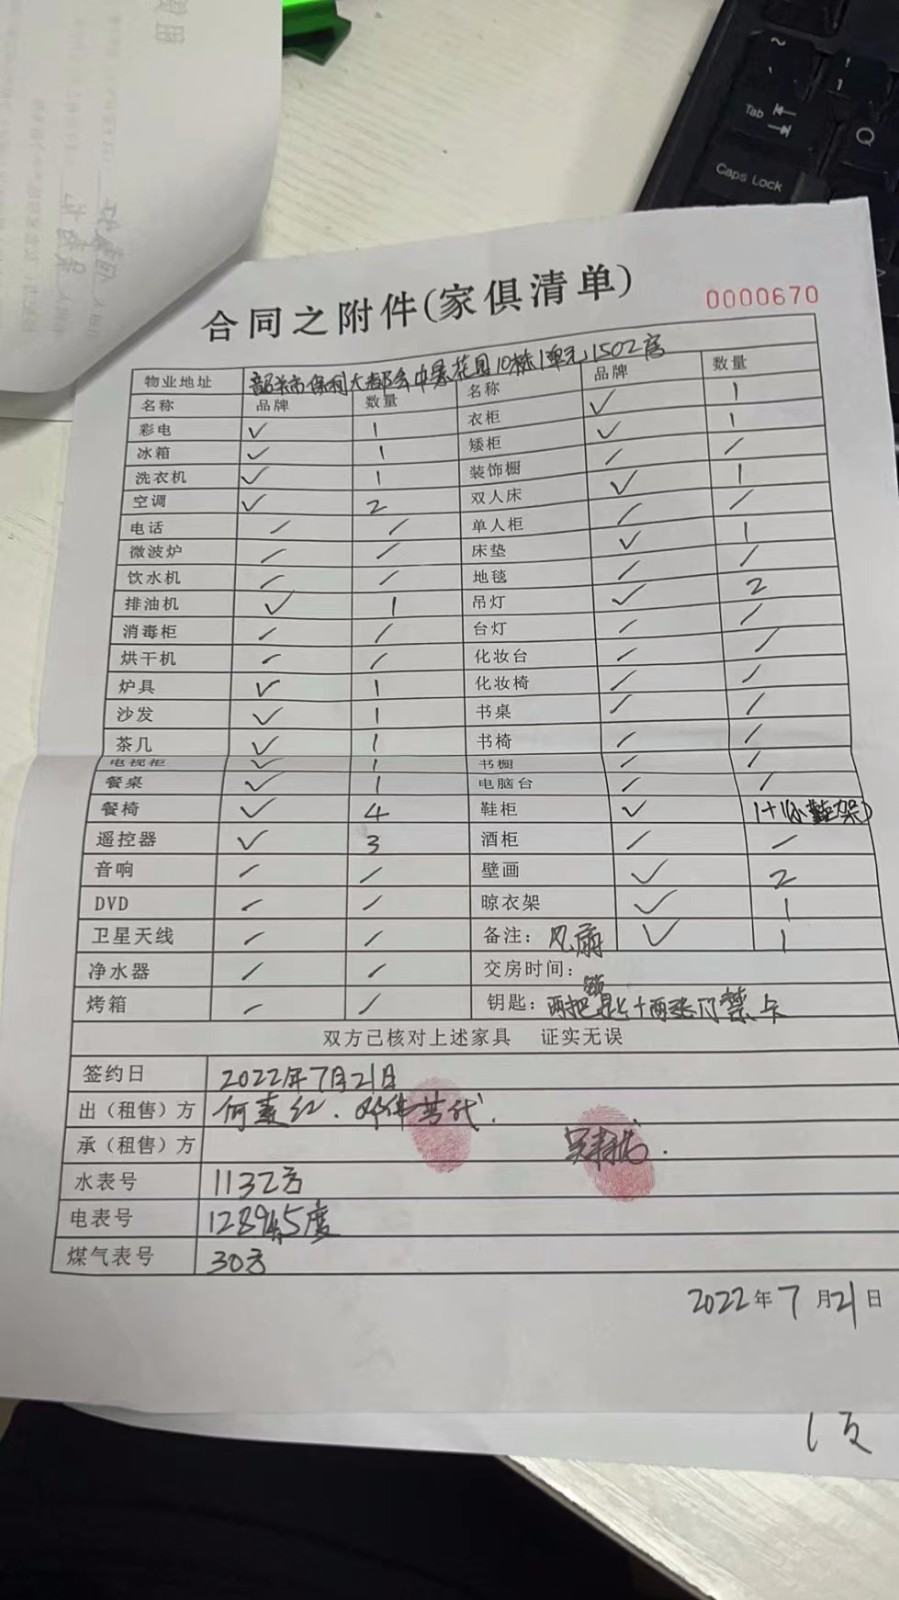 合同之附件(家俱清单)
0000670
物业地址 韶关市保利大都会中景花园10栋1单元1502房
名称 品牌 数量 名称 品牌 数量
彩电 ✓ 1 衣柜 ✓ 1
冰箱 ✓ 1 矮柜 ✓ 1
洗衣机 ✓ 1 装饰橱 / /
空调 ✓ 2 双人床 ✓ 1
电话 / / 单人柜 / /
微波炉 / / 床垫 ✓ 1
饮水机 / / 地毯 / /
排油机 ✓ 1 吊灯 ✓ 2
消毒柜 / / 台灯 / /
烘干机 / / 化妆台 / /
炉具 ✓ 1 化妆椅 / /
沙发 ✓ 1 书桌 / /
茶几 ✓ 1 书椅 / /
电视柜 ✓ 1 书橱 / /
餐桌 ✓ 1 电脑台 / /
餐椅 ✓ 4 鞋柜 ✓ 1+1(小鞋架)
遥控器 ✓ 3 酒柜 / /
音响 / / 壁画 ✓ 2
DVD / / 晾衣架 ✓ 1
卫星天线 / / 备注: 风扇 ✓ 1
净水器 / / 交房时间:
烤箱 / / 钥匙: 两把锁匙+两张门禁卡
双方已核对上述家具 证实无误
签约日 2022年7月21日
出（租售）方 何素红.
承（租售）方
水表号 1132方
电表号 12894.5度
煤气表号 30方
2022年7月21日